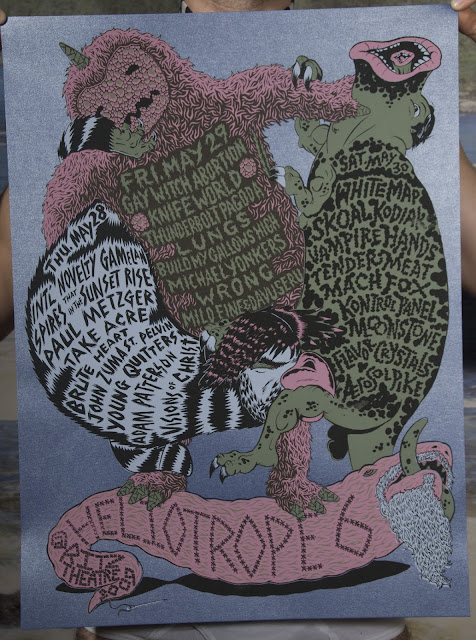 THU. MAY 28
INTL NOVELTY GAMELAN
SPIRES THAT IN THE SUNSET RISE
PAUL METZGER
TAKE ACRE
BRUTE HEART
JOHN ZUMA ST. PELVYN
YOUNG QUITTERS
ADAM PATTERSON
VISIONS OF CHRIST
FRI. MAY 29
GAY WITCH ABORTION
KNIFE WORLD
THUNDERBOLT PAGODA
LUNGS
BUILD MY GALLOWS HIGH
MICHAEL YONKERS
WRONG
MILO FINE & DAVU SERU
SAT. MAY 30
WHITE MAP
SKOAL KODIAK
VAMPIRE HANDS
TENDER MEAT
MACH FOX
KONTROL PANEL
MOONSTONE
FLAVOR CRYSTALS
AEROSOL PIKE
HELIOTROPE 6
RITZ
THEATRE